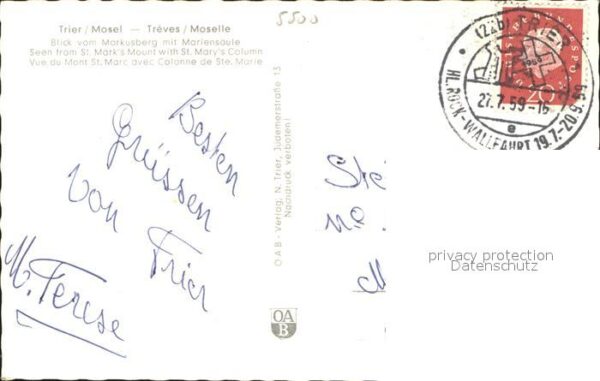 5500
Trier / Mosel — Trèves / Moselle
Blick vom Markusberg mit Mariensäule
Seen from St. Mark's Mount with St. Mary's Column
Vue du Mont St. Marc avec Colonne de Ste. Marie
Besten
Grüssen
von
Trier
M. Terese
OAB-Verlag, N. Trier, Judemerstraße 13
Nachdruck verboten!
OA
B
(22b) TRIER
27.7.59-16
e
HL.ROCK-WALLFAHRT 19.7.-20.9.59
20
privacy protection
Datenschutz